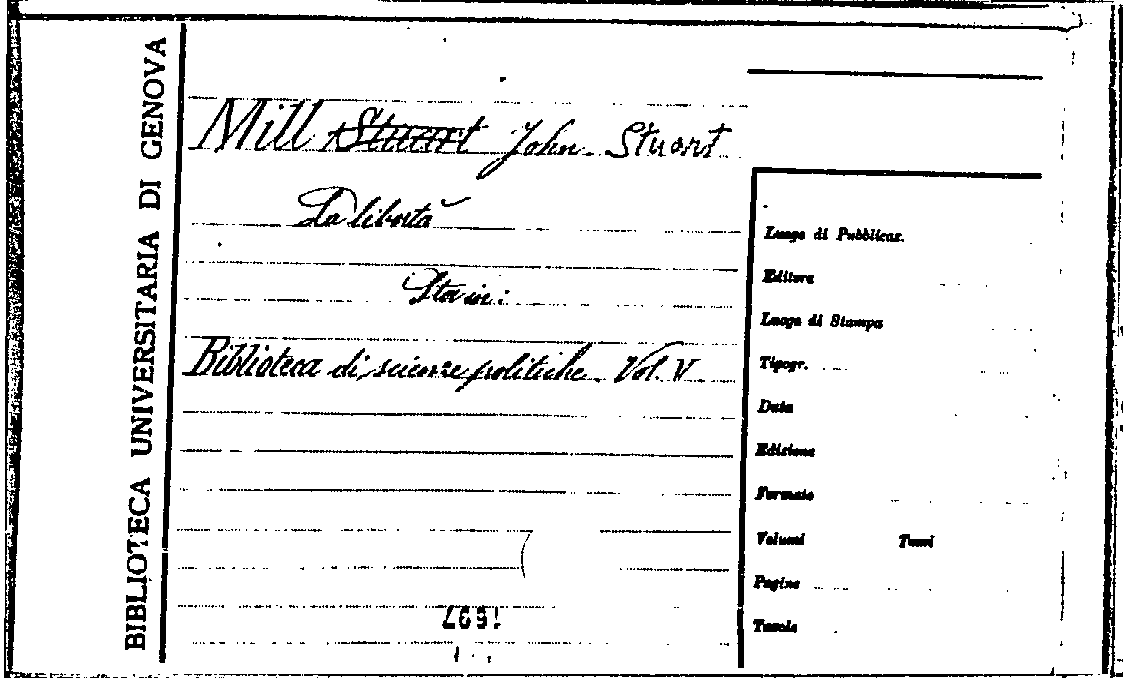 BIBLIOTECA UNIVERSITARIA DI GENOVA
Mill Stuart John Stuart
La libertà
Sta in:
Biblioteca di scienze politiche Vol. V
Luogo di Pubblicaz.
Editore
Luogo di Stampa
Tipogr.
Data
Edizione
Formato
Volumi Tomi
Pagine
Tavole